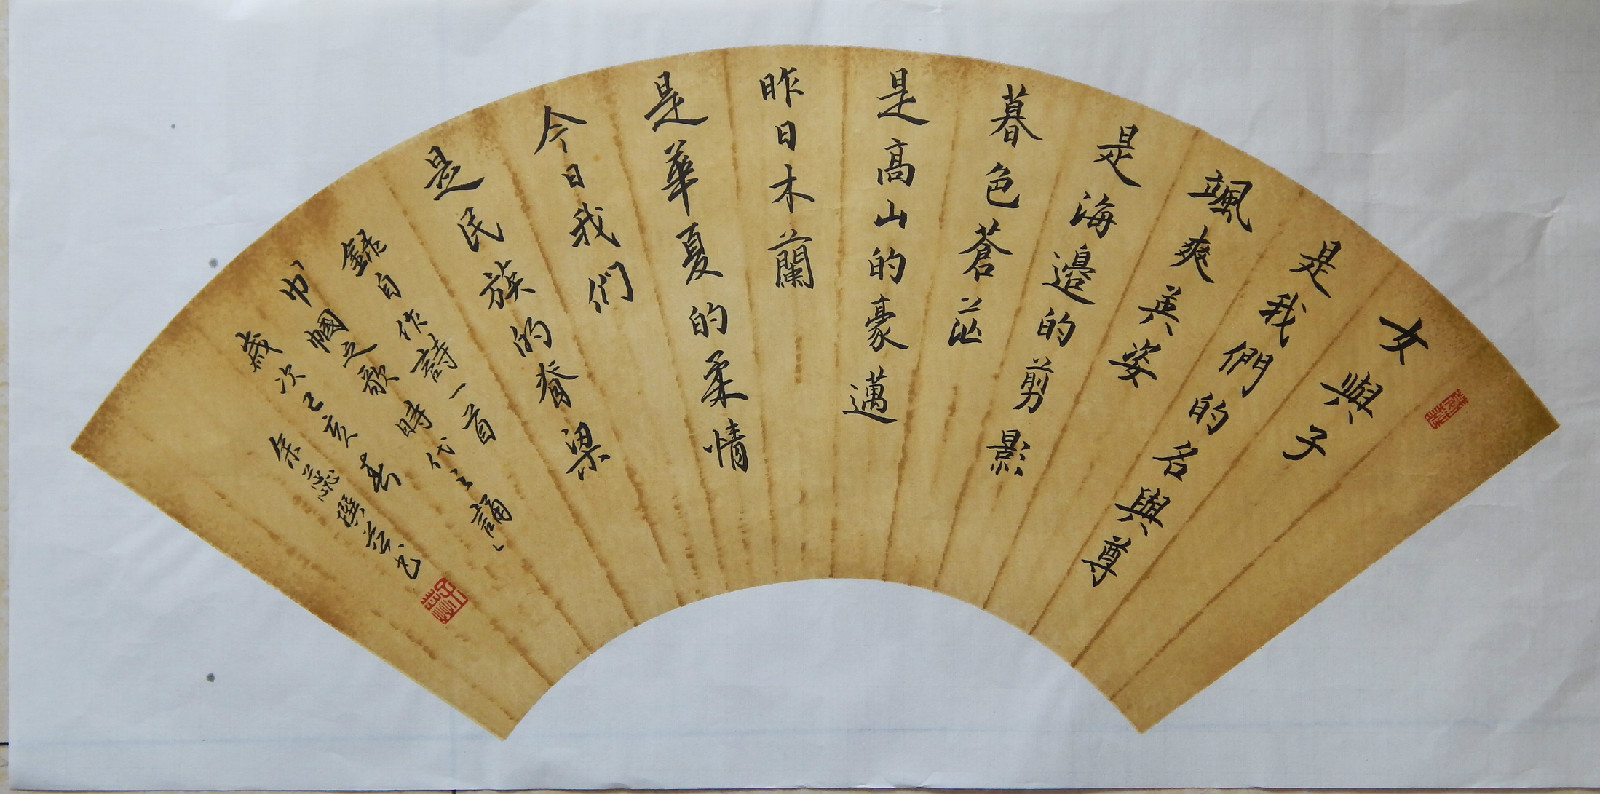 女與子
是我們的名與尊
颯爽英姿
是海邊的剪影
暮色蒼茫
是高山的豪邁
昨日木蘭
是華夏的柔情
今日我们
是民族的脊梁
錄自作詩一首
巾幗之歌時代之誦
歲次己亥春
撰并书